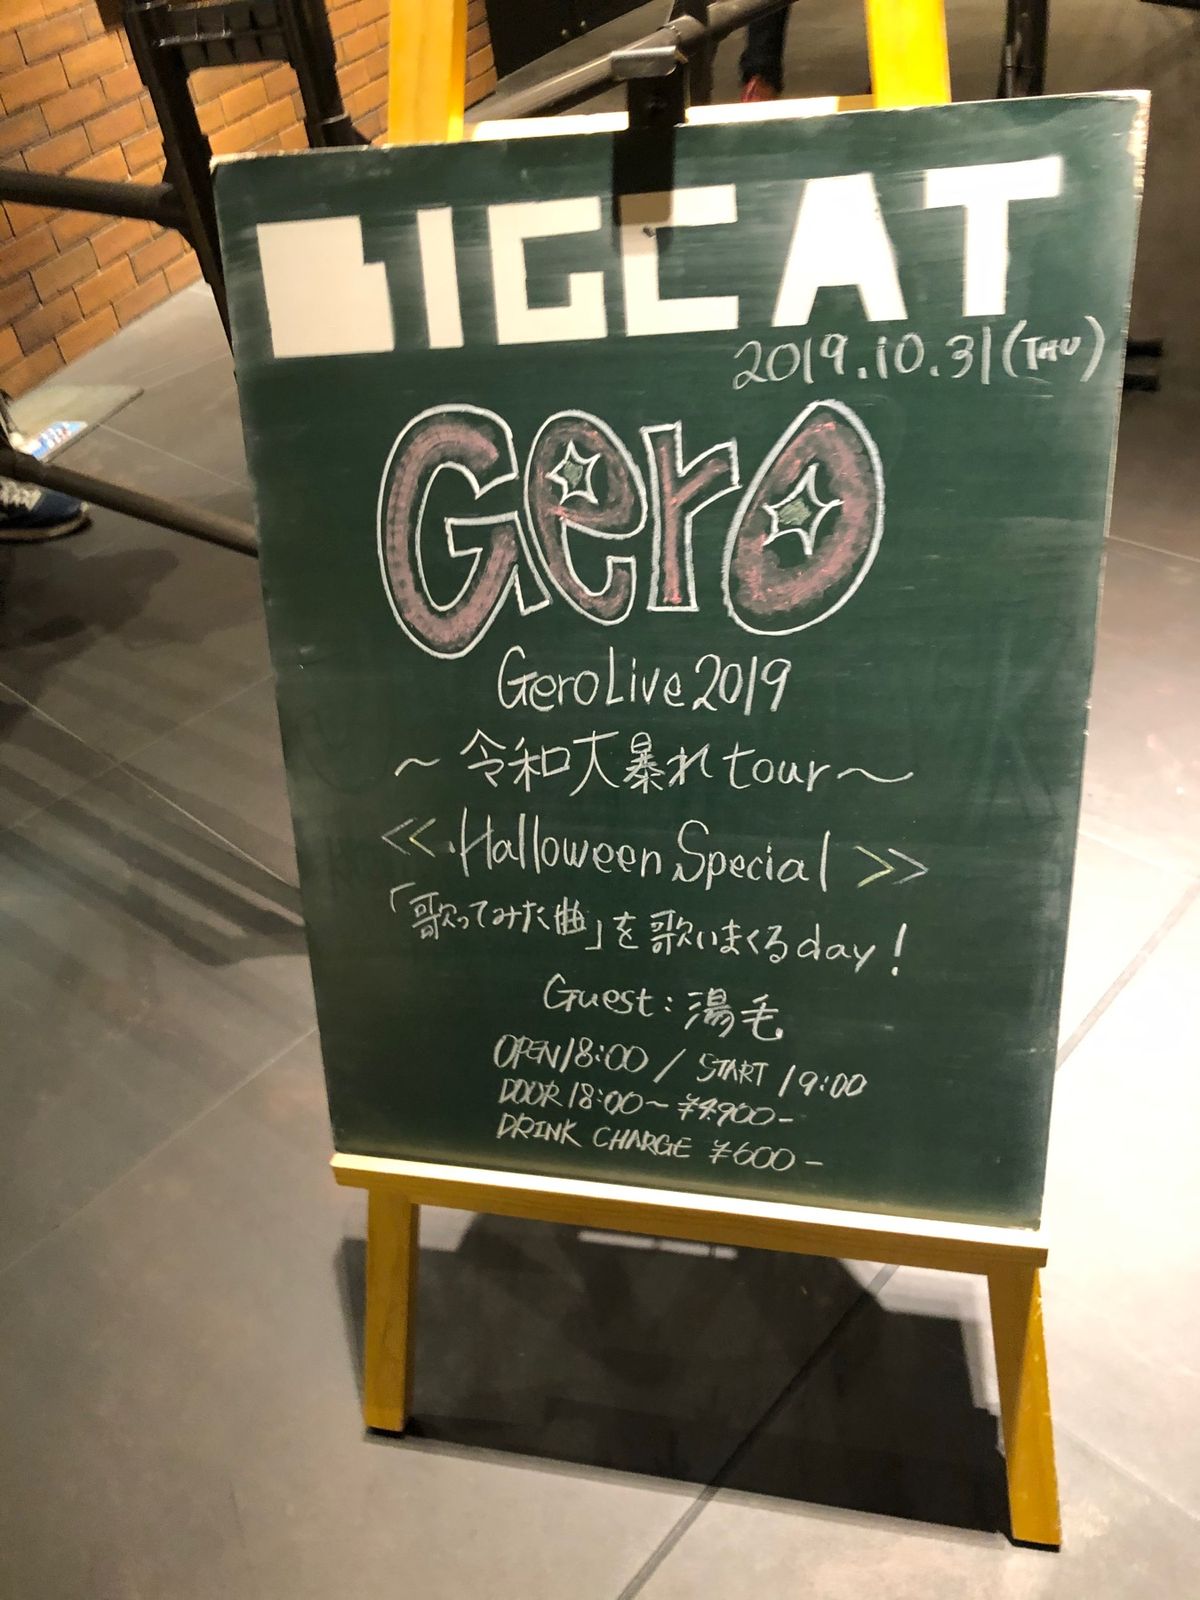 BIGCAT
2019.10.31(THU)
Gero
Gero Live 2019
～令和大暴れtour～
<<Halloween Special>>
「歌ってみた曲」を歌いまくるday!
Guest:湯毛
OPEN18:00 / START 19:00
DOOR18:00～¥4.900-
DRINK CHARGE ¥600-